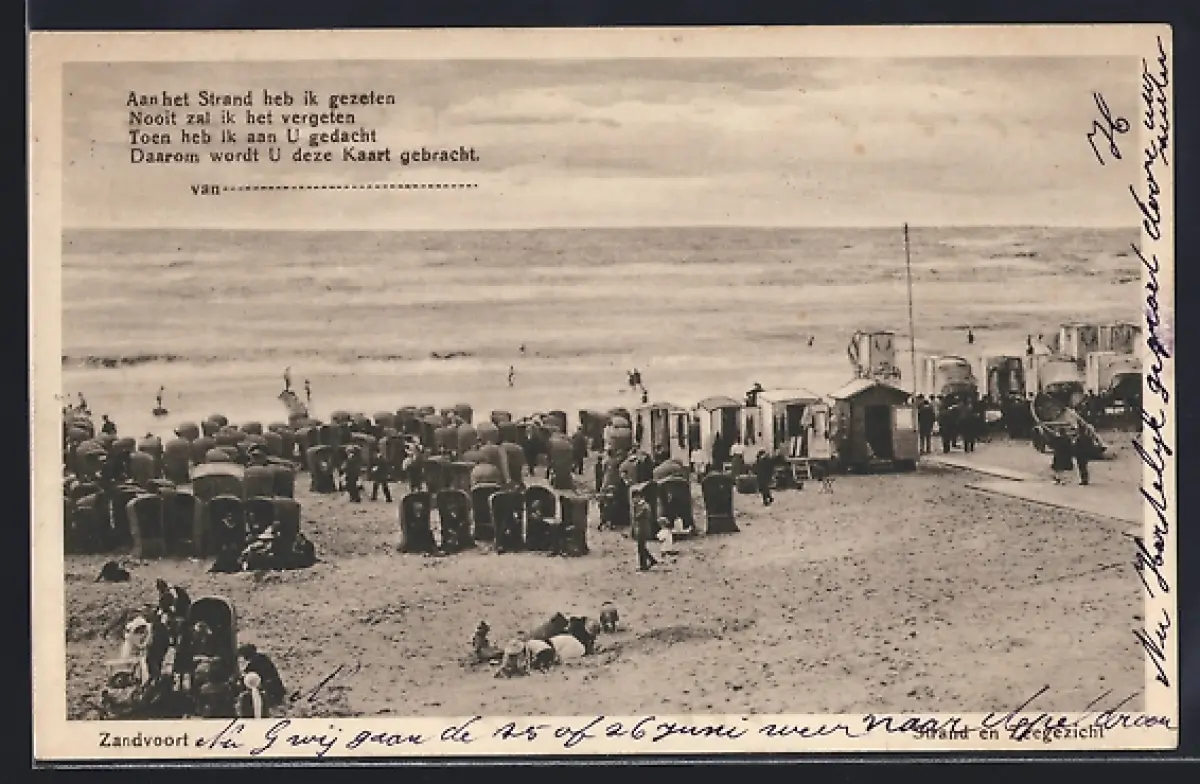 Aan het Strand heb ik gezeten
Nooit zal ik het vergeten
Toen heb ik aan U gedacht
Daarom wordt U deze Kaart gebracht.
van
Zandvoort
Strand en Zeegezicht
wij gaan de 25 of 26 Juni weer naar Apeldroon
Nu Hartelijk gegroet door uw
H